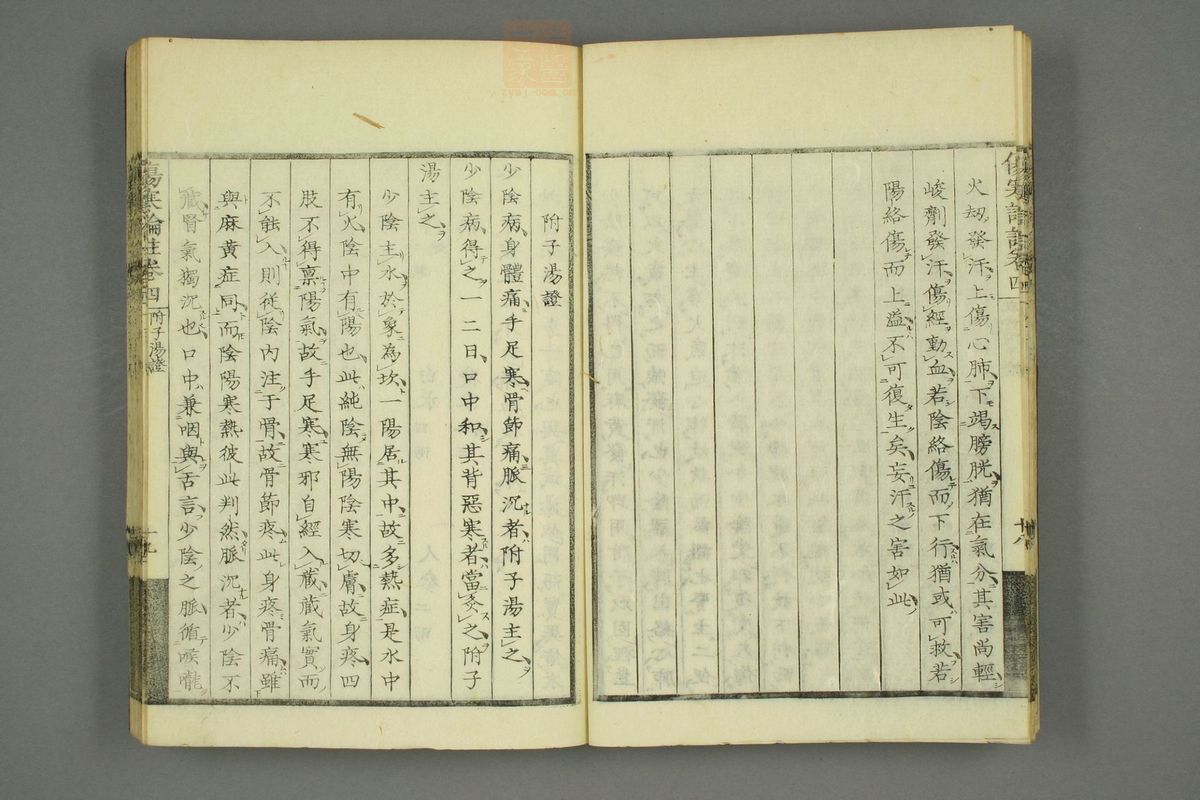 傷寒論註卷四
十八
火劫發汗上傷心肺下竭膀胱猶在氣分其害尚輕
峻劑發汗傷經動血若陰絡傷而下行猶或可救若
陽絡傷而上溢不可復生矣妄汗之害如此
附子湯證
少陰病身體痛手足寒骨節痛脈沉者附子湯主之
少陰病得之一二日口中和其背惡寒者當灸之附子
湯主之
少陰主水於象為坎一陽居其中故多熱症是水中
有火陰中有陽也此純陰無陽陰寒切膚故身疼四
肢不得稟陽氣故手足寒寒邪自經入藏藏氣實而
不能入則從陰內注于骨故骨節疼此身疼骨痛雖
與麻黃症同而陰陽寒熱彼此判然脈沉者少陰不
藏腎氣獨沉也口中兼咽與舌言少陰之脈循喉嚨
傷寒論註卷四
附子湯證
十九
zysj.com.cn